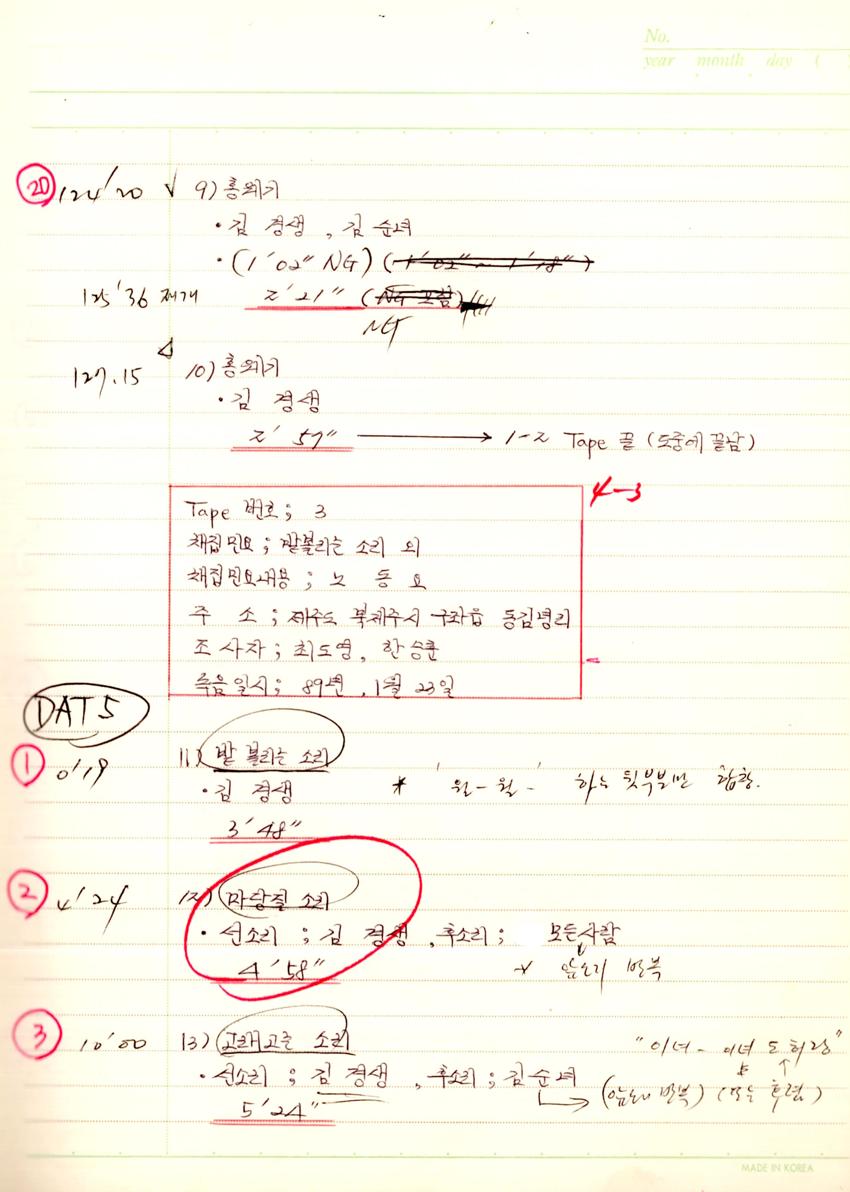 No.
year month day (
20 124'20 √ 9) 흥애기
· 김경생, 김순녀
· (1'02" NG) (1'02" ~ 1'18")
125'36 재개 2'21" (NG 포함)
NG
127.15 10) 흥애기
· 김경생
2' 57" → 1-2 Tape 끝 (도중에 끝남)
4-3
Tape 번호; 3
채집민요; 밭볼리는 소리 외
채집민요내용; 노동요
주 소; 제주도 북제주시 구좌읍 동김녕리
조사자; 최도영, 한승훈
녹음일시; 89년, 1월 23일
DAT 5
① 0'19 11) 밭 볼리는 소리
· 김경생 * '월-월-' 하는 뒷부분만 합창.
3'48"
② 4'24 12) 마당질 소리
· 선소리; 김경생, 후소리; 모든사람
4'58" 앞소리 반복
③ 10'00 13) 고래고는 소리 "이녀- 이녀도허랑"
· 선소리; 김경생, 후소리; 김순녀 → (앞소리 반복) (또는 후렴)
5'24"
MADE IN KOREA